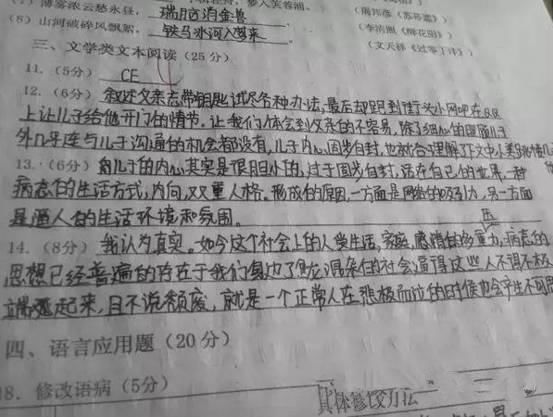 (7) 薄雾浓云愁永昼，瑞脑消金兽 (李清照《醉花阴》)
(8) 山河破碎风飘絮，铁马冰河入梦来 (文天祥《过零丁洋》)
三、文学类文本阅读（25分）
11.（5分） CE
12.（6分） 叙述父亲忘带钥匙试尽各种办法，最后却跑到街头小网吧在QQ
上让儿子给他开门的情节，让我们体会到父亲的不容易，除了细心的照顾儿子
外几乎连与儿子沟通的机会都没有，儿子内心固步自封，也就合理解了文中小
13.（6分） 儿子的内心其实是很胆小的，过于固步自封，活在自己的世界，一种
病态的生活方式，内向，双重人格。形成的原因，一方面是网络的吸引力，另一方面
是逼人的生活环境和氛围。
压
14.（8分） 我认为真实。如今这个社会上的人受生活，家庭，感情的多重力，病态的
思想已经普遍的存在于我们身边了，混杂的社会逼得这些人不得不极
端起来，且不说颓废，就是一个正常人在消极面前的时候也会产生不
四、语言应用题（20分）
18. 修改语病（5分） 具体修改方法